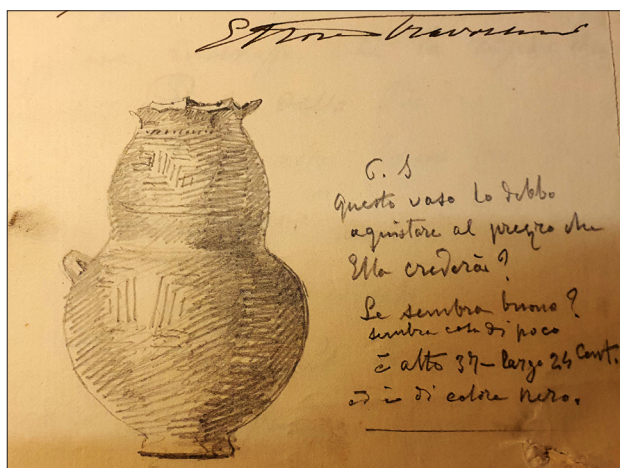 Ettore
P. S
Questo vaso lo debbo
aquistare al prezzo che
Ella crederà?
Le sembra buono?
sembra cosa di poco
è alto 37 – largo 24 Cent.
ed è di colore nero.